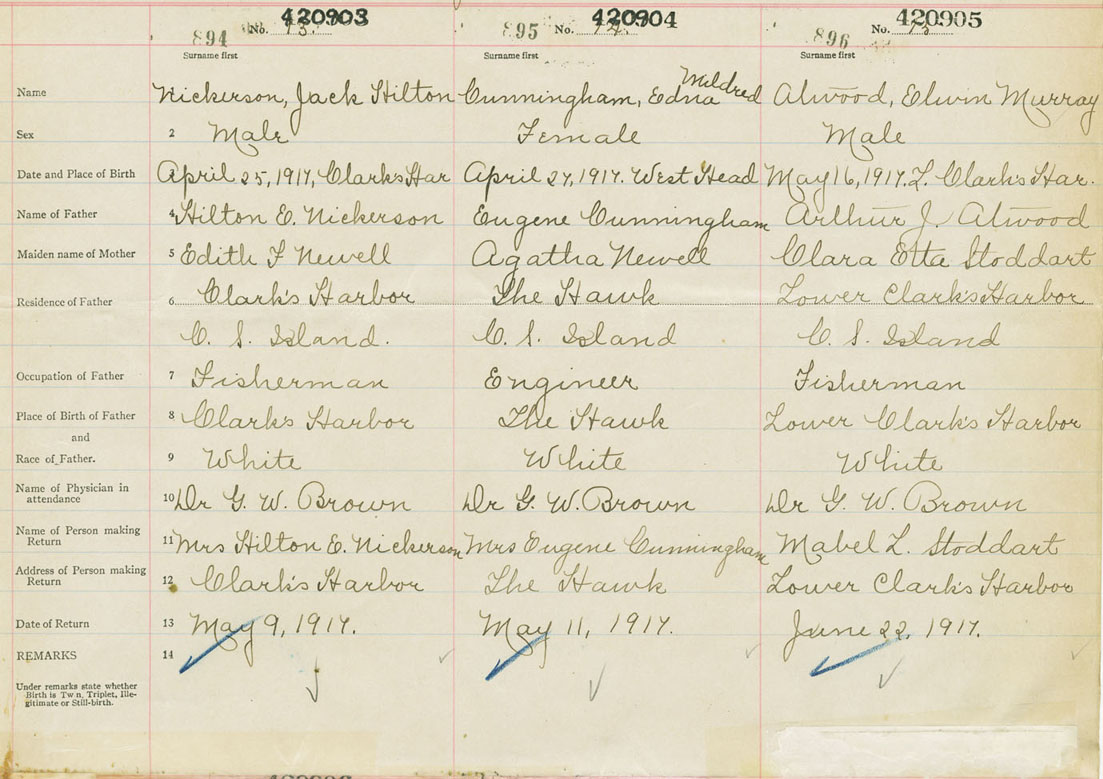 420903 420904 420905
894 No. 13. 895 No. 14. 896 No.
Surname first Surname first Surname first
Name Nickerson, Jack Hilton Cunningham, Edna Mildred Atwood, Elwin Murray
Sex 2 Male Female Male
Date and Place of Birth April 25, 1917, Clark's Har April 27, 1917. West Head May 16, 1917. L. Clark's Har.
Name of Father 4 Hilton E. Nickerson Eugene Cunningham Arthur J. Atwood
Maiden name of Mother 5 Edith F Newell Agatha Newell Clara Etta Stoddart
Residence of Father 6 Clark's Harbor The Hawk Lower Clark's Harbor
C. S. Island. C. S. Island C. S. Island
Occupation of Father 7 Fisherman Engineer Fisherman
Place of Birth of Father 8 Clark's Harbor The Hawk Lower Clark's Harbor
and
Race of Father. 9 White White White
Name of Physician in
attendance 10 Dr G. W. Brown Dr G. W. Brown Dr G. W. Brown
Name of Person making
Return 11 Mrs Hilton E. Nickerson Mrs Eugene Cunningham Mabel L. Stoddart
Address of Person making
Return 12 Clark's Harbor The Hawk Lower Clark's Harbor
Date of Return 13 May 9, 1917. May 11, 1917. June 22, 1917.
REMARKS 14
Under remarks state whether
Birth is Tw n, Triplet, Ille-
gitimate or Still-birth.